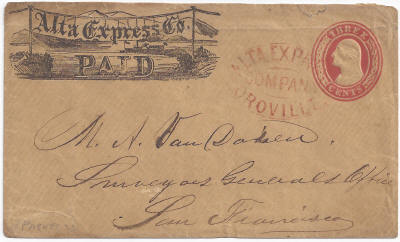 Alta Express Co.
PAID
ALTA EXP
COMPAN
OROVILLE
THREE
CENTS
M. A. Van Dorsen,
Surveyors Generals Office
San Francisco